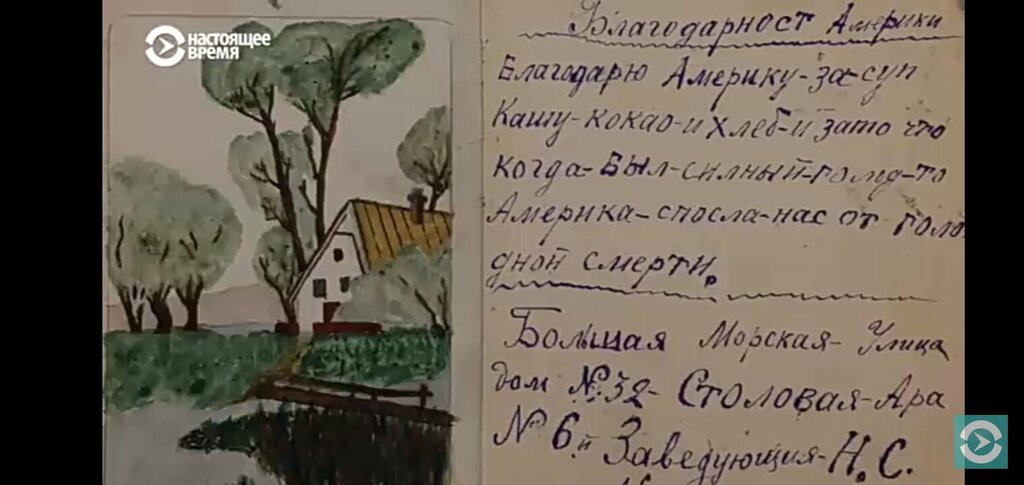 настоящее
время
Благодарност Америки
Благодарю Америку-за-суп
Кашу-кокао-и хлеб-и зато что
когда-был-силный-голод-то
Америка-спосла-нас от голо
дной смерти.
Большая Морская-Улица
дом №32-Столовая-Ара
№ 6й Заведующия-Н.С.